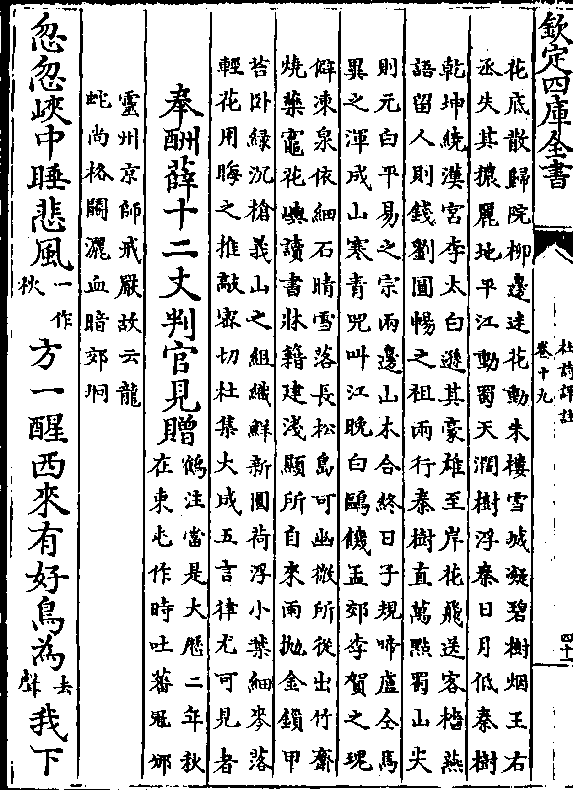 欽定四庫全書
杜詩詳註
卷十九
四十一
花底散歸院柳邊迷花動朱樓雪城凝碧樹烟王右
丞失其穠麗地平江動蜀天濶樹浮秦日月低秦樹
乾坤繞漢宮李太白遜其豪雄至岸花飛送客檣燕
語留人則錢劉圓暢之祖兩行秦樹直萬點蜀山尖
則元白平易之宗兩邊山木合終日子規啼盧仝馬
異之渾成山寒青兕叫江晚白鷗饑孟郊李賀之瑰
僻凍泉依細石晴雪落長松島可幽微所從出竹齋
燒藥竈花嶼讀書牀籍建淺顯所自來雨拋金鎖甲
苔卧緑沉槍義山之組織鮮新圓荷浮小葉細麥落
輕花用晦之推敲密切杜集大成五言律尤可見者
奉酬薛十二丈判官見贈
鶴注當是大厯二年秋
在東屯作時吐蕃冦邠
靈州京師戒嚴故云龍
蛇尚格鬭灑血暗郊坰
忽忽峽中睡悲風一作秋方一醒西來有好鳥為去聲我下